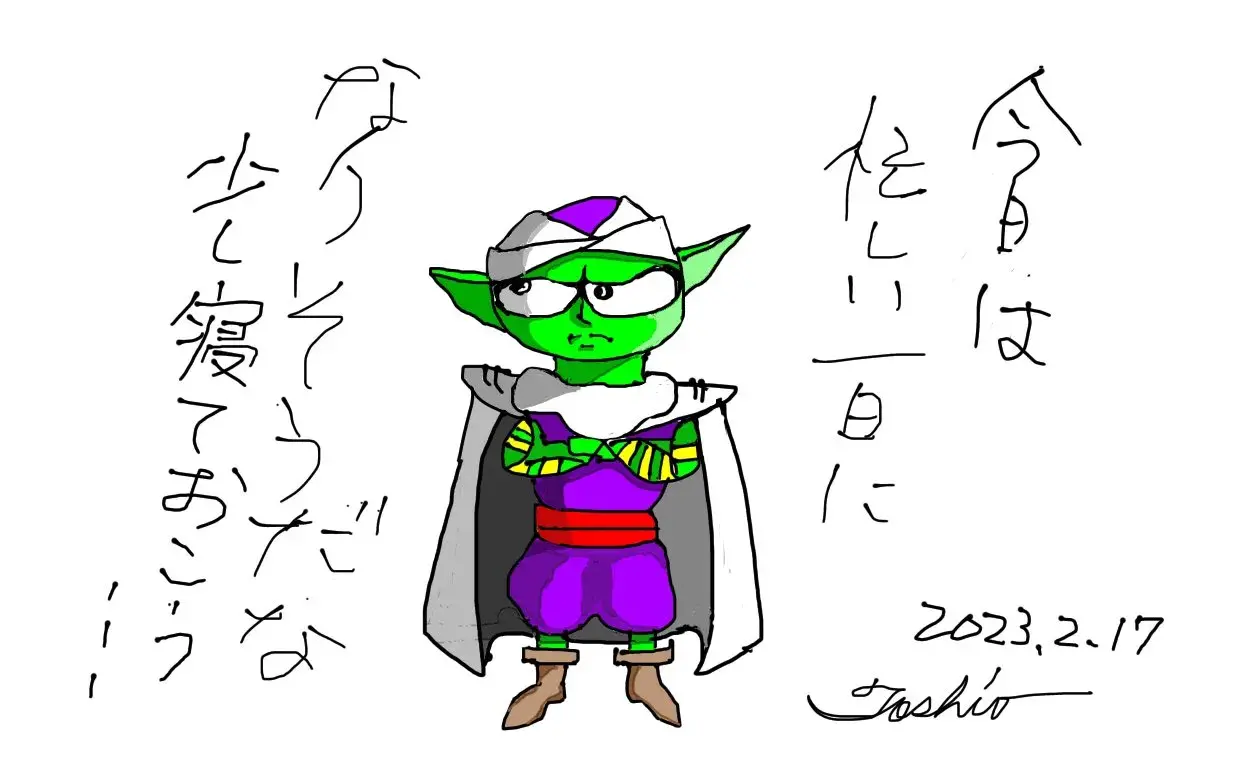 今日は
忙しい一日に
なりそうだな
少し寝ておこう…
2023.2.17
Toshio